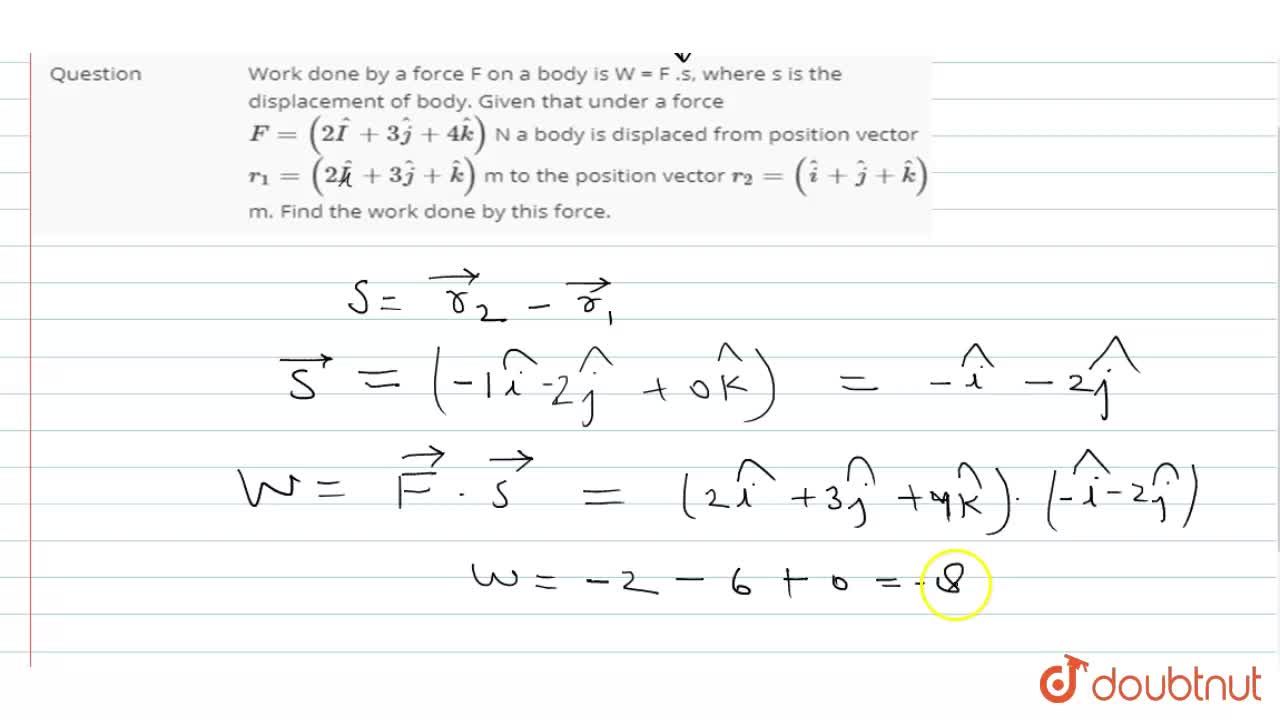 Question Work done by a force F on a body is W = F .s, where s is the
displacement of body. Given that under a force
F = (2Î + 3ĵ + 4k̂) N a body is displaced from position vector
r₁ = (2î + 3ĵ + k̂) m to the position vector r₂ = (î + ĵ + k̂)
m. Find the work done by this force.
S = r⃗₂ - r⃗₁
s⃗ = (-1î -2ĵ + 0k̂) = -î - 2ĵ
W = F⃗ . s⃗ = (2î + 3ĵ + 4k̂) . (-î - 2ĵ)
W = -2 - 6 + 0 = -8
doubtnut